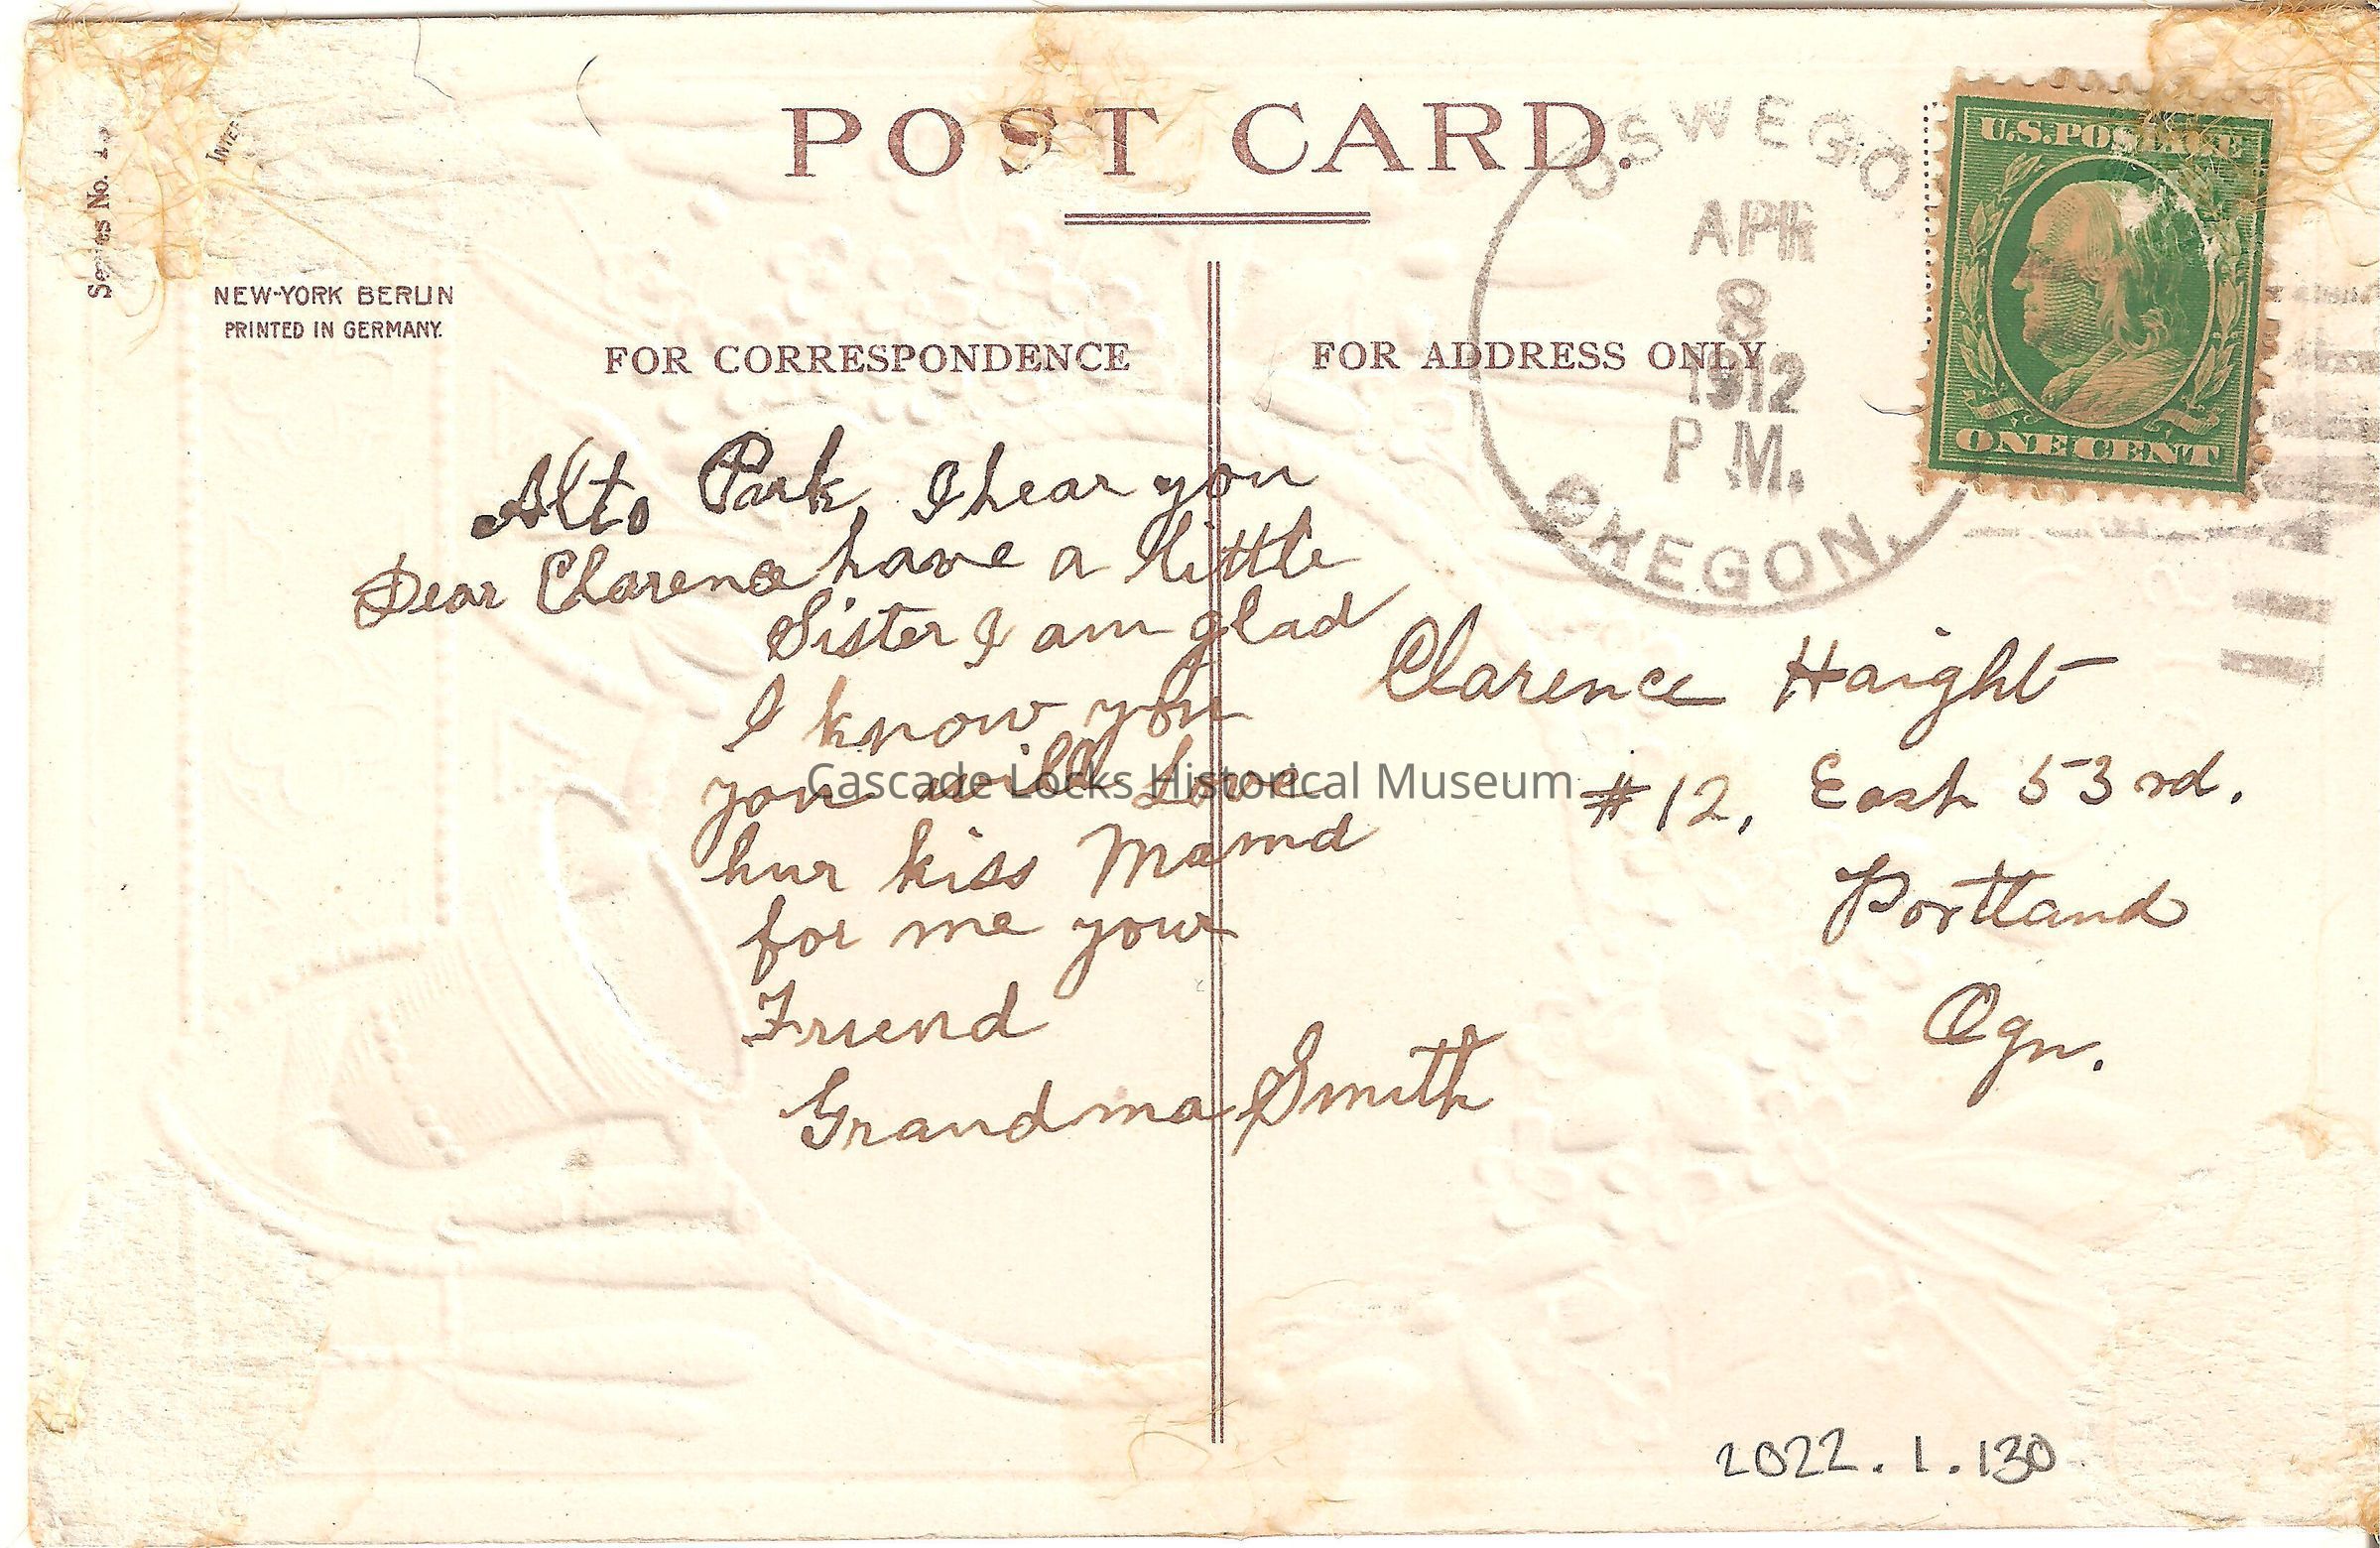 POST CARD.
Series No.
INTER
NEW-YORK BERLIN
PRINTED IN GERMANY.
FOR CORRESPONDENCE
FOR ADDRESS ONLY
OSWEGO
APR
8
1912
P M.
OREGON.
U.S.POSTAGE
ONE CENT
Alto Park, I hear you
Dear Clarence have a little
Sister I am glad
I know you
you will Love
hur kiss Mama
for me your
Friend
Grandma Smith
Clarence Haight
#12, East 53rd.
Portland
Ogn.
Cascade Locks Historical Museum
2022.1.130